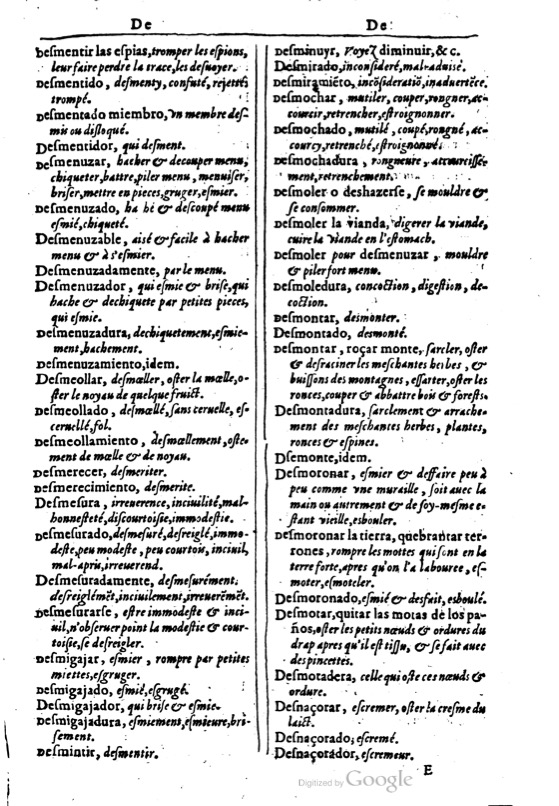 De
Desmentir las espias, tromper les espions,
leur faire perdre la trace, les desuoyer.
Desmentido, desmenty, confuté, rejetté
trompé.
Desmentado miembro, vn membre des-
mis ou disloqué.
Desmentidor, qui desment.
Desmenuzar, hacher & decouper menu,
chiqueter, battre, piler menu, menuiser,
briser, mettre en pieces, gruger, esmier.
Desmenuzado, ha hé & descoupé menu
esmié, chiqueté.
Desmenuzable, aisé & facile à hacher
menu & à s'esmier.
Desmenuzadamente, par le menu.
Desmenuzador, qui esmie & brise, qui
hache & dechiquete par petites pieces,
qui esmie.
Desmenuzadura, dechiquetement, esmie-
ment, hachement.
Desmenuzamiento, idem.
Desmeollar, desmœller, oster la mœlle, o-
ster le noyau de quelque fruict.
Desmeollado, desmœllé, sans ceruelle, es-
ceruellé, fol.
Desmeollamiento, desmœllement, oste-
ment de mœlle & de noyau.
Desmerecer, desmeriter.
Desmerecimiento, desmerite.
Desmesura, irreuerence, inciuilité, mal-
honnesteté, discourtoisie, immodestie.
Desmesurado, desmesuré, desreiglé, immo-
deste, peu modeste, peu courtois, inciuil,
mal-apris, irreuerend.
Desmesuradamente, desmesurément,
desreiglémēt, inciuilement, irreuerēmēt.
Desmesurarse, estre immodeste & inci-
uil, n'obseruer point la modestie & cour-
toisie, se desreigler.
Desmigajar, esmier, rompre par petites
miettes, esgruger.
Desmigajado, esmié, esgrugé.
Desmigajador, qui brise & esmie.
Desmigajadura, esmiement, esmieure, bri-
sement.
Desmintir, desmentir.
De
Desminuyr, Voyez diminuir, & c.
Desmirado, inconsideré, mal-aduisé.
Desmiramiēto, incōsideratiō, inaduertēce.
Desmochar, mutiler, couper, rongner, ac-
courcir, retrencher, estroignonner.
Desmochado, mutilé, coupé, rongné, ac-
courcy, retrenché, estroignonné.
Desmochadura, rongneure, accourcisse-
ment, retrenchement.
Desmoler o deshazerse, se mouldre &
se consommer.
Desmoler la vianda, digerer la viande,
cuire la viande en l'estomach.
Desmoler pour desmenuzar, mouldre
& piler fort menu.
Desmoledura, concoction, digestion, de-
coction.
Desmontar, desmonter.
Desmontado, desmonté.
Desmontar, roçar monte, sarcler, oster
& desraciner les meschantes herbes, &
buissons des montagnes, essarter, oster les
ronces, couper & abbattre bois & forests.
Desmontadura, sarclement & arrache-
ment des meschantes herbes, plantes,
ronces & espines.
Dsemonte, idem.
Desmoronar, esmier & deffaire peu à
peu comme vne muraille, soit auec la
main ou autrement & de soy-mesme e-
stant vieille, esbouler.
Desmoronar la tierra, quebrantar ter-
rones, rompre les mottes qui sont en la
terre forte, apres qu'on l'a labouree, es-
moter, esmoteler.
Desmoronado, esmié & desfait, esboulé.
Desmotar, quitar las motas de los pa-
ños, oster les petits nœuds & ordures du
drap apres qu'il est tissu, & se fait auec
des pincettes.
Desmotadera, celle qui oste ces nœuds &
ordure.
Desnaçorar, escremer, oster la cresme du
laict.
Desnaçorado, escremé.
Desnaçorador, escremeur.
E
Digitized by Google